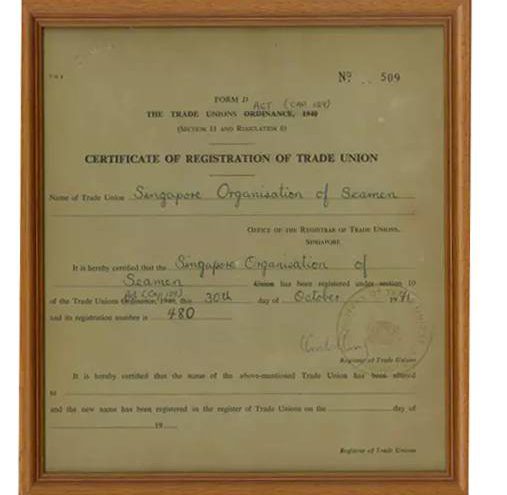 Nº 509
FORM D
ACT (CAP 129)
THE TRADE UNIONS ORDINANCE, 1940
(SECTION 11 AND REGULATION 6)
CERTIFICATE OF REGISTRATION OF TRADE UNION
Name of Trade Union Singapore Organisation of Seamen
OFFICE OF THE REGISTRAR OF TRADE UNIONS,
SINGAPORE
It is hereby certified that the Singapore Organisation of
Seamen Union has been registered under section 10
Act (CAP 129)
of the Trade Unions Ordinance, 1940, this 30th day of October 1971
and its registration number is 480
Registrar of Trade Unions
It is hereby certified that the name of the above-mentioned Trade Union has been altered
to
and the new name has been registered in the register of Trade Unions on the day of
19
Registrar of Trade Unions